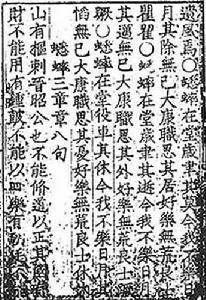 遺風焉○蟋蟀在堂歲聿其莫今我不樂日
月其除無已大康職思其居好樂無荒良士
瞿瞿○蟋蟀在堂歲聿其逝今我不樂日月
其邁無已大康職思其外好樂無荒良士蹶
蹶○蟋蟀在堂役車其休今我不樂日月其
慆無已大康職思其憂好樂無荒良士休休
蟋蟀三章章八句
山有樞刺晉昭公也不能脩道以正其國有
財不能用有鍾鼓不能以自樂有朝